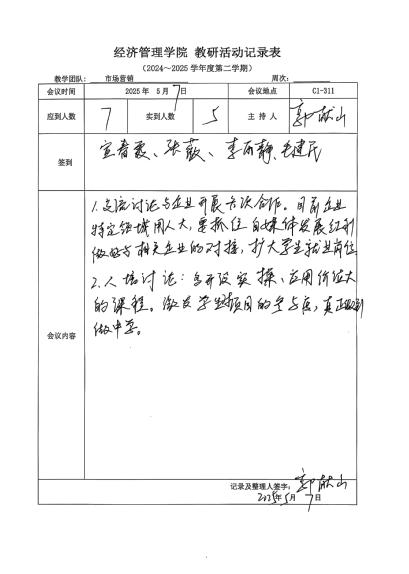 经济管理学院 教研活动记录表
（2024～2025 学年度第二学期）
教学团队： 市场营销 周次：
会议时间 2025年 5月7日 会议地点 C1-311
应到人数 7 实到人数 5 主 持 人 郭献山
签到 宣春霞、张薇、李丽静、毛建民
会议内容
1.交流讨论与企业开展六次合作。目前企业
特定领域用人大，要抓住自媒体发展红利
做好与相关企业的对接，扩大学生就业岗位
2.人培讨论：多开设实操、应用价值大
的课程。激发学生项目的参与度，真正做到
做中学。
记录及整理人签字： 郭献山
2025年5月7日